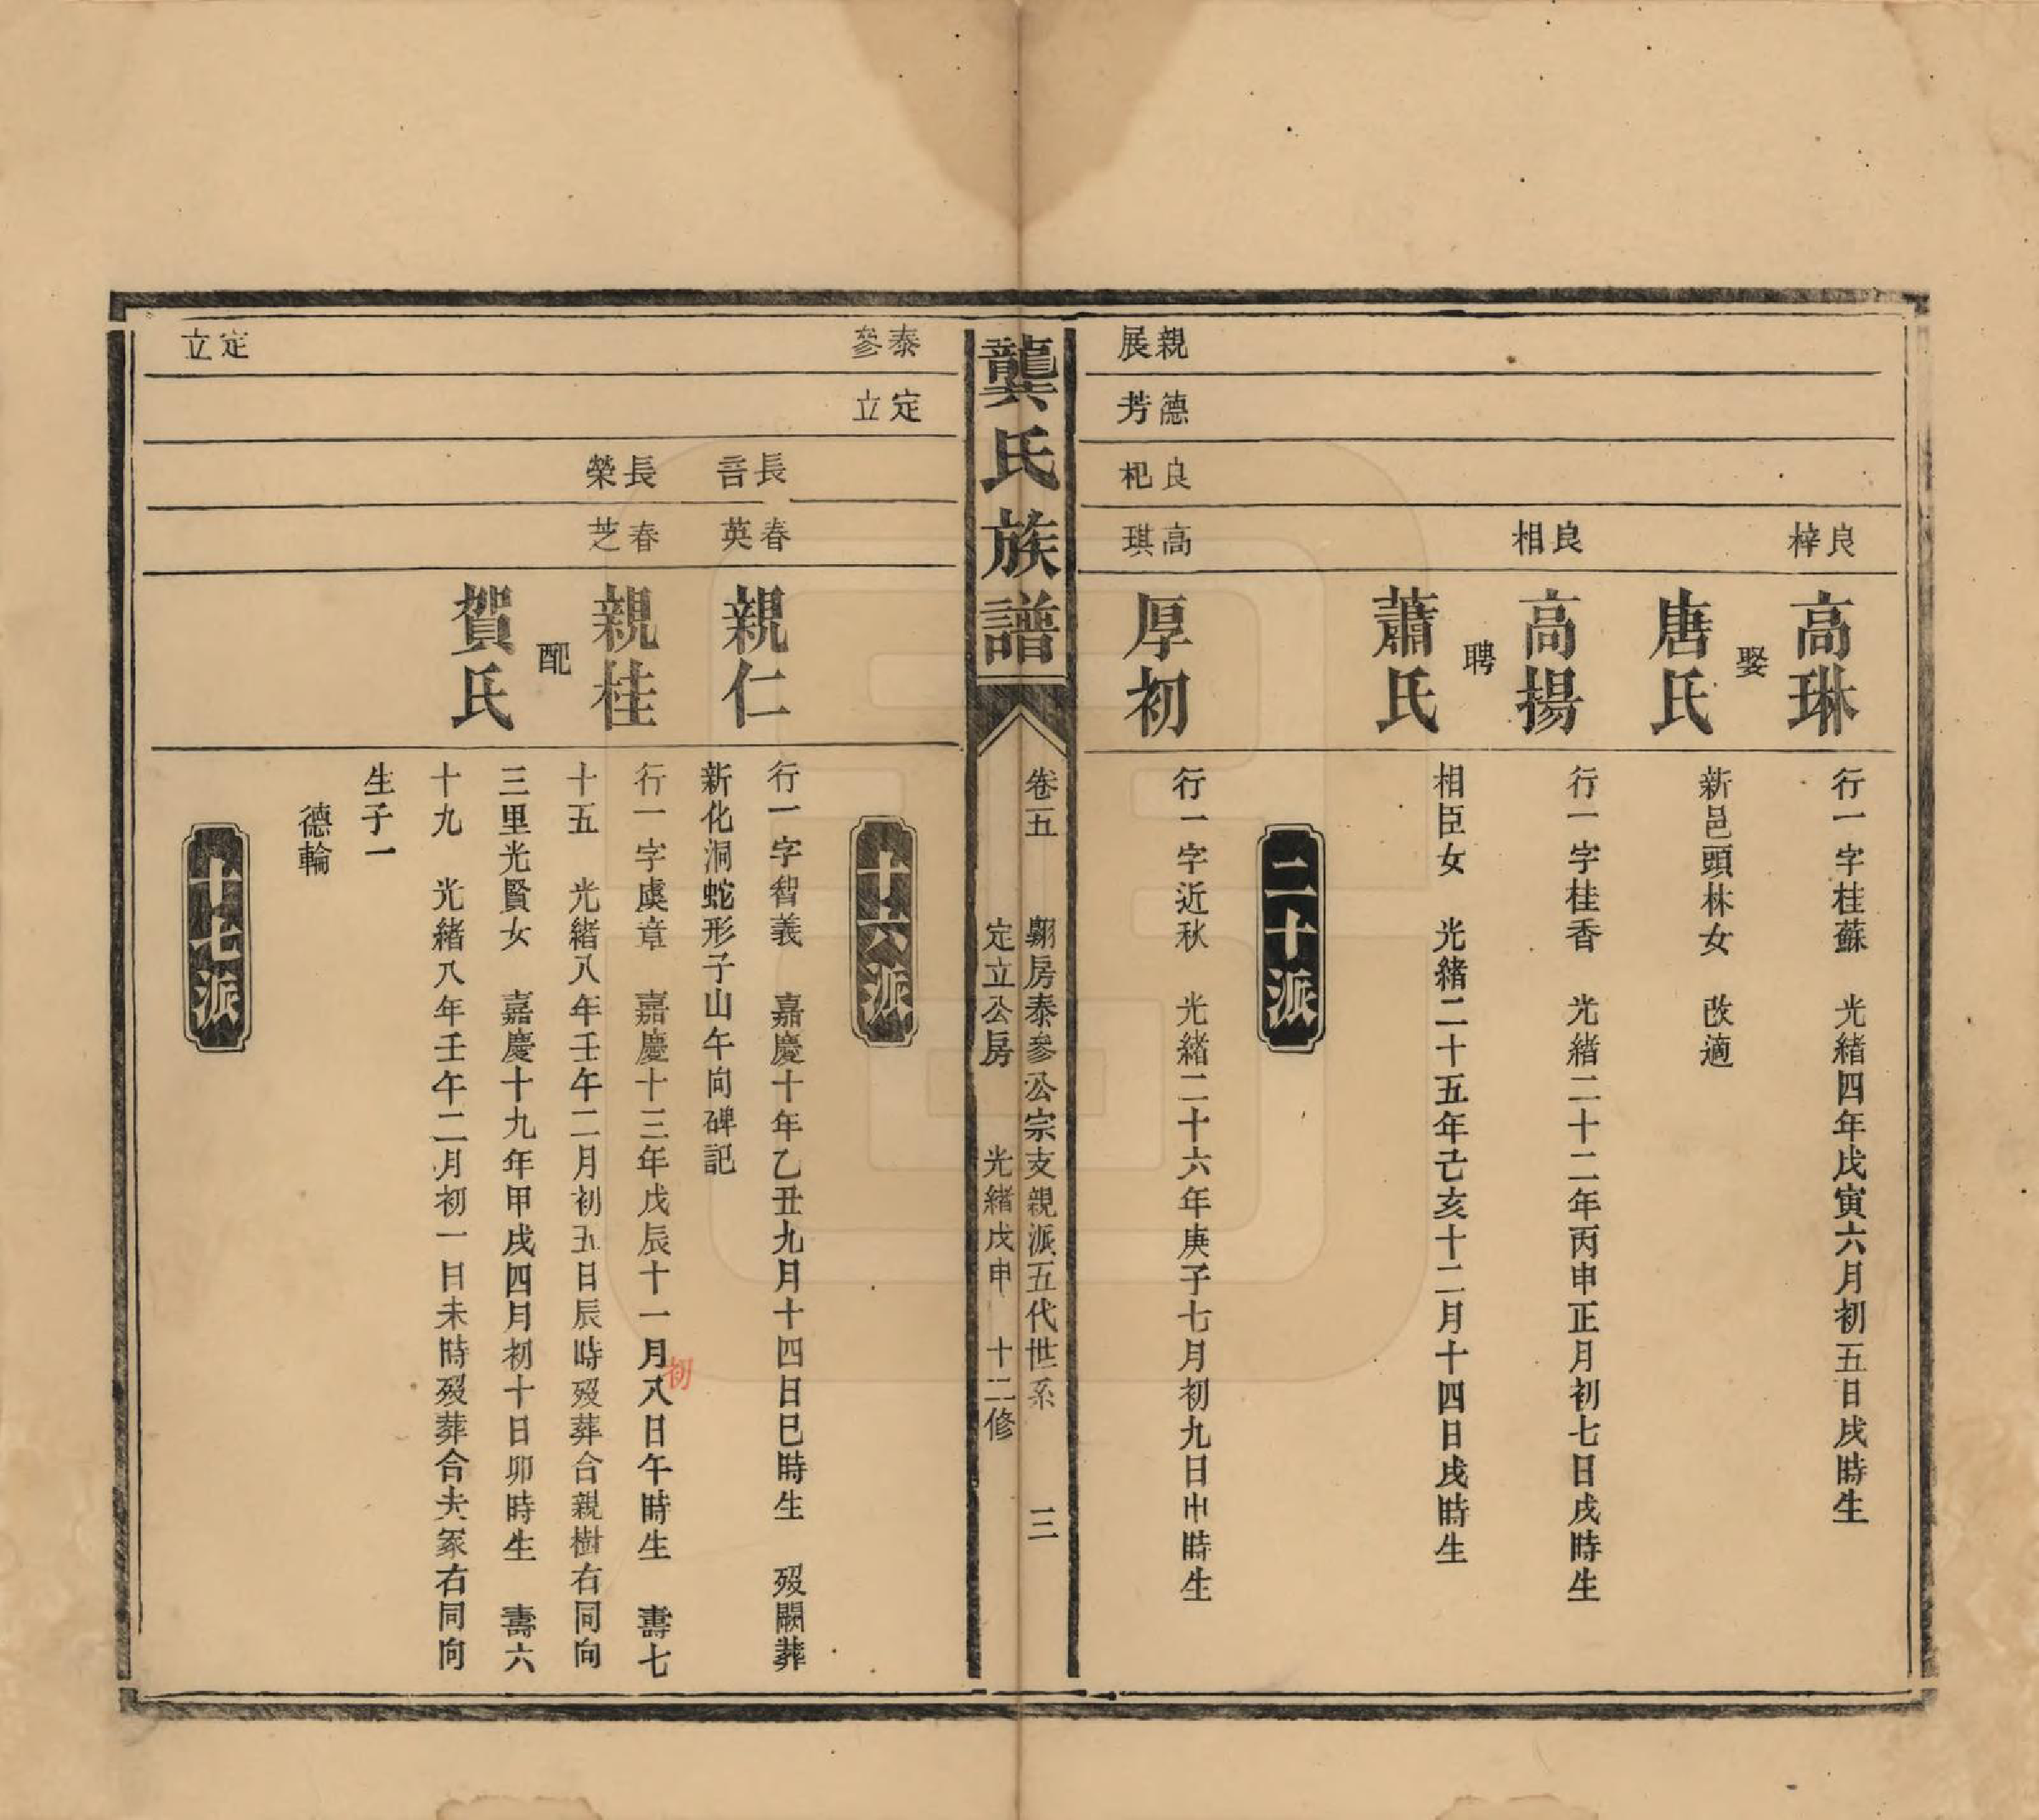 良梓
高琳
行一字桂蘇 光緒四年戊寅六月初五日戌時生
娶
唐氏
新邑頭林女 改適
良相
高揚
行一字桂香 光緒二十二年丙申正月初七日戌時生
聘
蕭氏
相臣女 光緒二十五年己亥十二月十四日戌時生
二十派
親展
德芳
良杞
高琪
厚初
行一字近秋 光緒二十六年庚子七月初九日申時生
龔氏族譜
卷五 翺房泰參公宗支親派五代世系 三
定立公房 光緒戊申 十二修
泰參
定立
十六派
長言
春英
親仁
行一字智義 嘉慶十年乙丑九月十四日巳時生 歿闕葬
新化洞蛇形子山午向碑記
長榮
春芝
親桂
行一字虞章 嘉慶十三年戊辰十一月八日午時生 壽七
初
十五 光緒八年壬午二月初五日辰時歿葬合親樹右同向
配
賀氏
三里光賢女 嘉慶十九年甲戌四月初十日卯時生 壽六
十九 光緒八年壬午二月初一日未時歿葬合夫冢右同向
生子一
德輪
定立
十七派